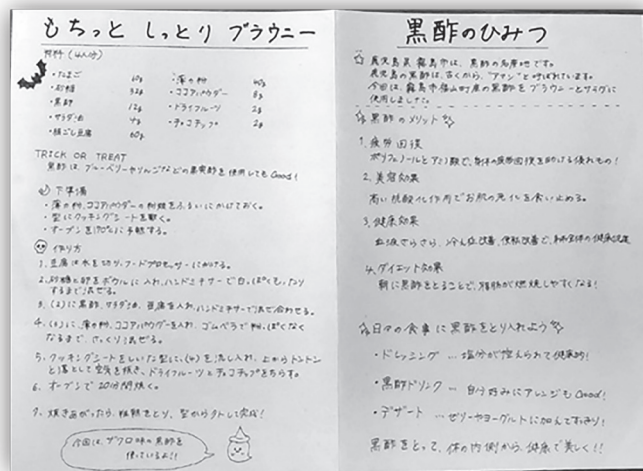 もちっと しっとり ブラウニー
材料(4人分)
・たまご 60g
・砂糖 32g
・黒酢 12g
・サラダ油 4g
・絹ごし豆腐 60g
・薄力粉 40g
・ココアパウダー 8g
・ドライフルーツ 2g
・チョコチップ 2g
TRICK OR TREAT
黒酢は、ブルーベリーやりんごなどの果実酢を使用してもGood!
下準備
・薄力粉、ココアパウダーの粉類をふるいにかけておく。
・型にクッキングシートを敷く。
・オーブンを170℃に予熱する。
作り方
1. 豆腐は水を切り、フードプロセッサーにかける。
2. 砂糖と卵をボウルに入れ、ハンドミキサーで白っぽくもったりするまで混ぜる。
3. (2)に黒酢、サラダ油、豆腐を入れ、ハンドミキサーで混ぜ合わせる。
4. (3)に、薄力粉、ココアパウダーを入れ、ゴムベラで粉っぽくなく
なるまで、さっくり混ぜる。
5. クッキングシートをしいた型に、(4)を流し入れ、上からトントン
と落として空気を抜き、ドライフルーツとチョコチップをちらす。
6. オーブンで20分間焼く。
7. 焼き上がったら、粗熱をとり、型から外して完成!
今回は、ザクロ味の黒酢を
使っているよ!!
黒酢のひみつ
鹿児島県霧島市は、黒酢の名産地です。
鹿児島の黒酢は、古くから、"アマン"と呼ばれています。
今回は、霧島市福山町産の黒酢をブラウニーとサラダに
使用しました。
黒酢のメリット
1. 疲労回復
ポリフェノールとアミノ酸で、身体の疲労回復を助ける優れもの!
2. 美容効果
高い抗酸化作用でお肌の老化を食い止める。
3. 健康効果
血液さらさら、冷え症改善、便秘改善で、
4. ダイエット効果
朝に黒酢をとることで、脂肪が燃焼しやすくなる!
日々の食事に黒酢をとり入れよう
・ドレッシング … 塩分が控えられて健康的!
・黒酢ドリンク … 自分好みにアレンジもGood!
・デザート … ゼリーやヨーグルトに加えてすっきり!
黒酢をとって、体の内側から、健康で美しく!!